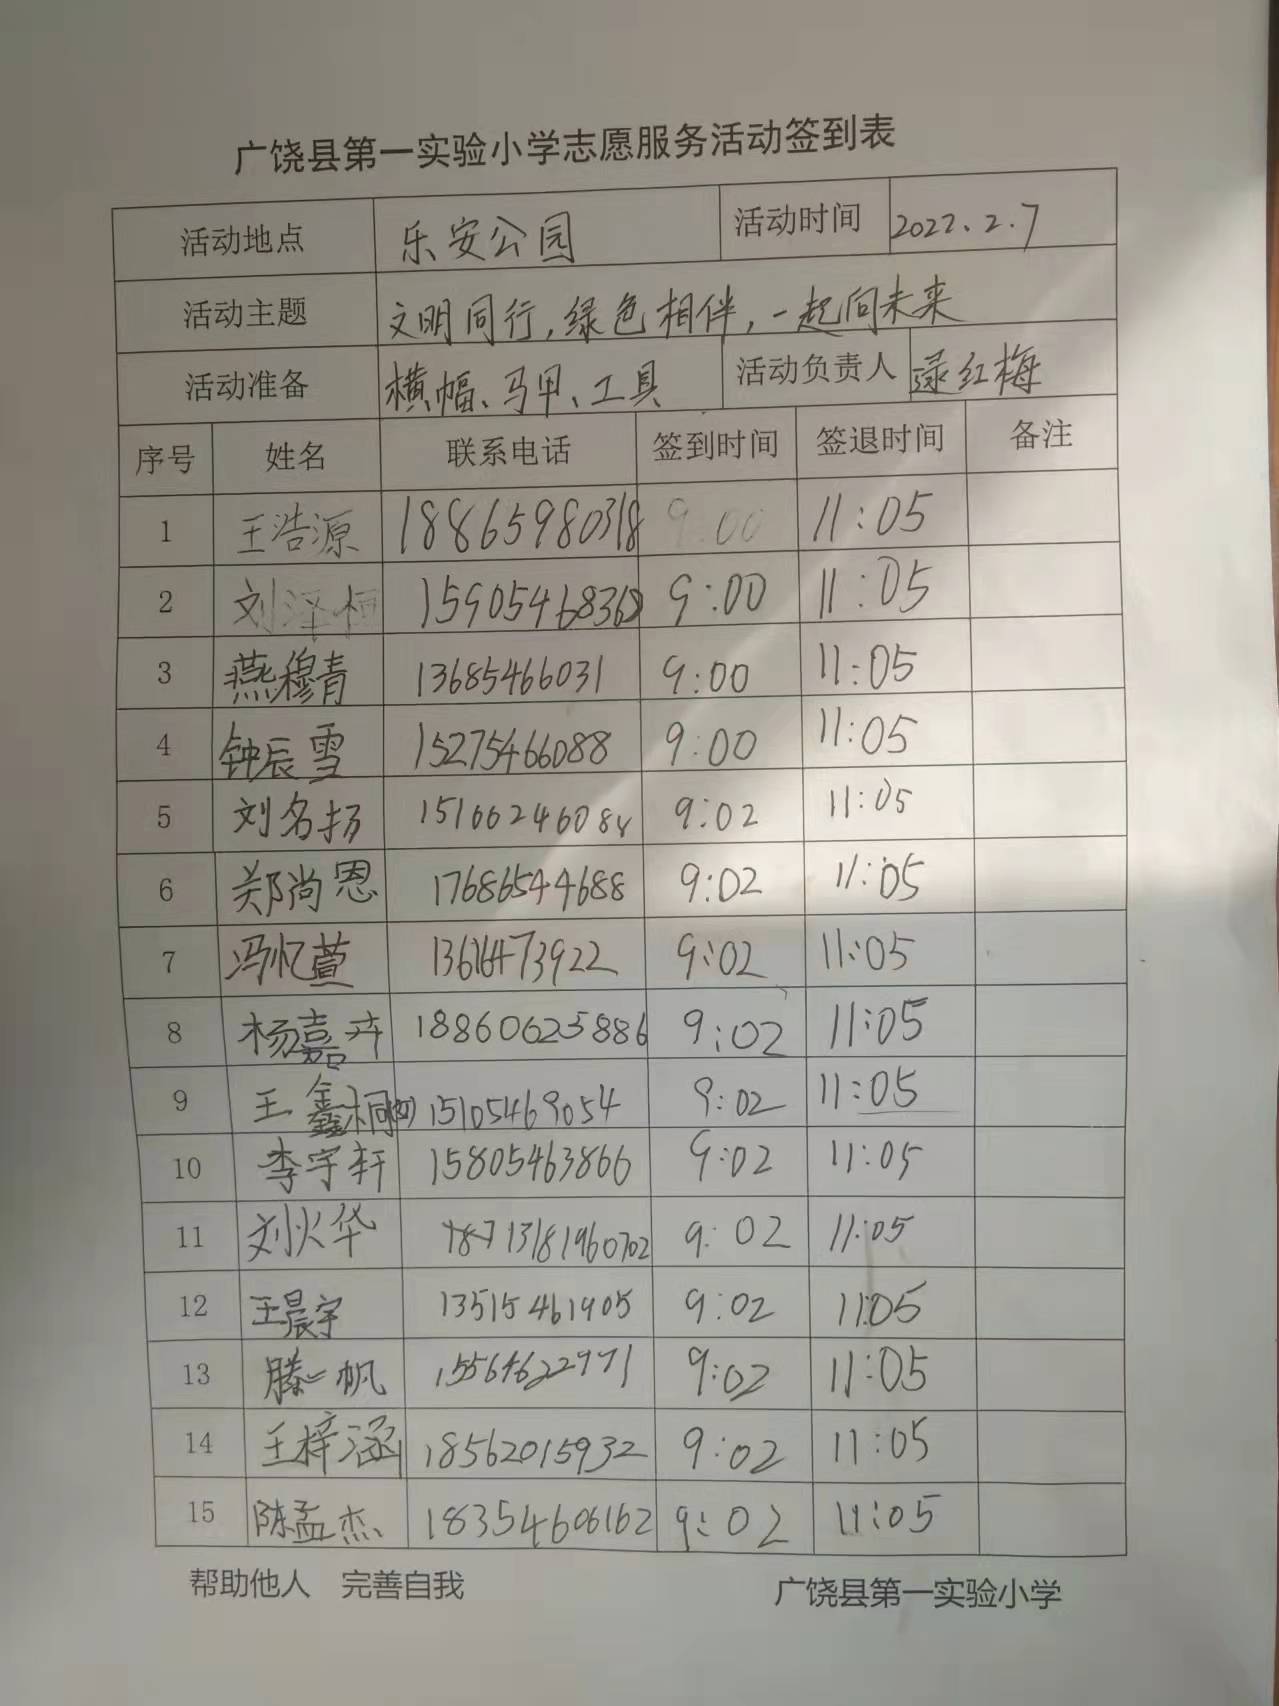 广饶县第一实验小学志愿服务活动签到表
活动地点 乐安公园 活动时间 2022.2.7
活动主题 文明同行,绿色相伴,一起向未来
活动准备 横幅、马甲、工具 活动负责人 逯红梅
序号 姓名 联系电话 签到时间 签退时间 备注
1 王浩源 18865980318 9:00 11:05
2 刘泽桓 15905468368 9:00 11:05
3 燕穆青 13685466031 9:00 11:05
4 钟辰雪 15275466088 9:00 11:05
5 刘名扬 15166246084 9:02 11:05
6 郑尚恩 17686544688 9:02 11:05
7 冯忆萱 9:02 11:05
8 杨嘉卉 18860625886 9:02 11:05
9 王鑫桐 15105469054 9:02 11:05
10 李宇轩 15805463866 9:02 11:05
11 刘火华 13181960702 9:02 11:05
12 王晨宇 13515461905 9:02 11:05
13 滕一帆 9:02 11:05
14 王梓涵 18562015932 9:02 11:05
15 陈孟杰 18354606162 9:02 11:05
帮助他人 完善自我 广饶县第一实验小学